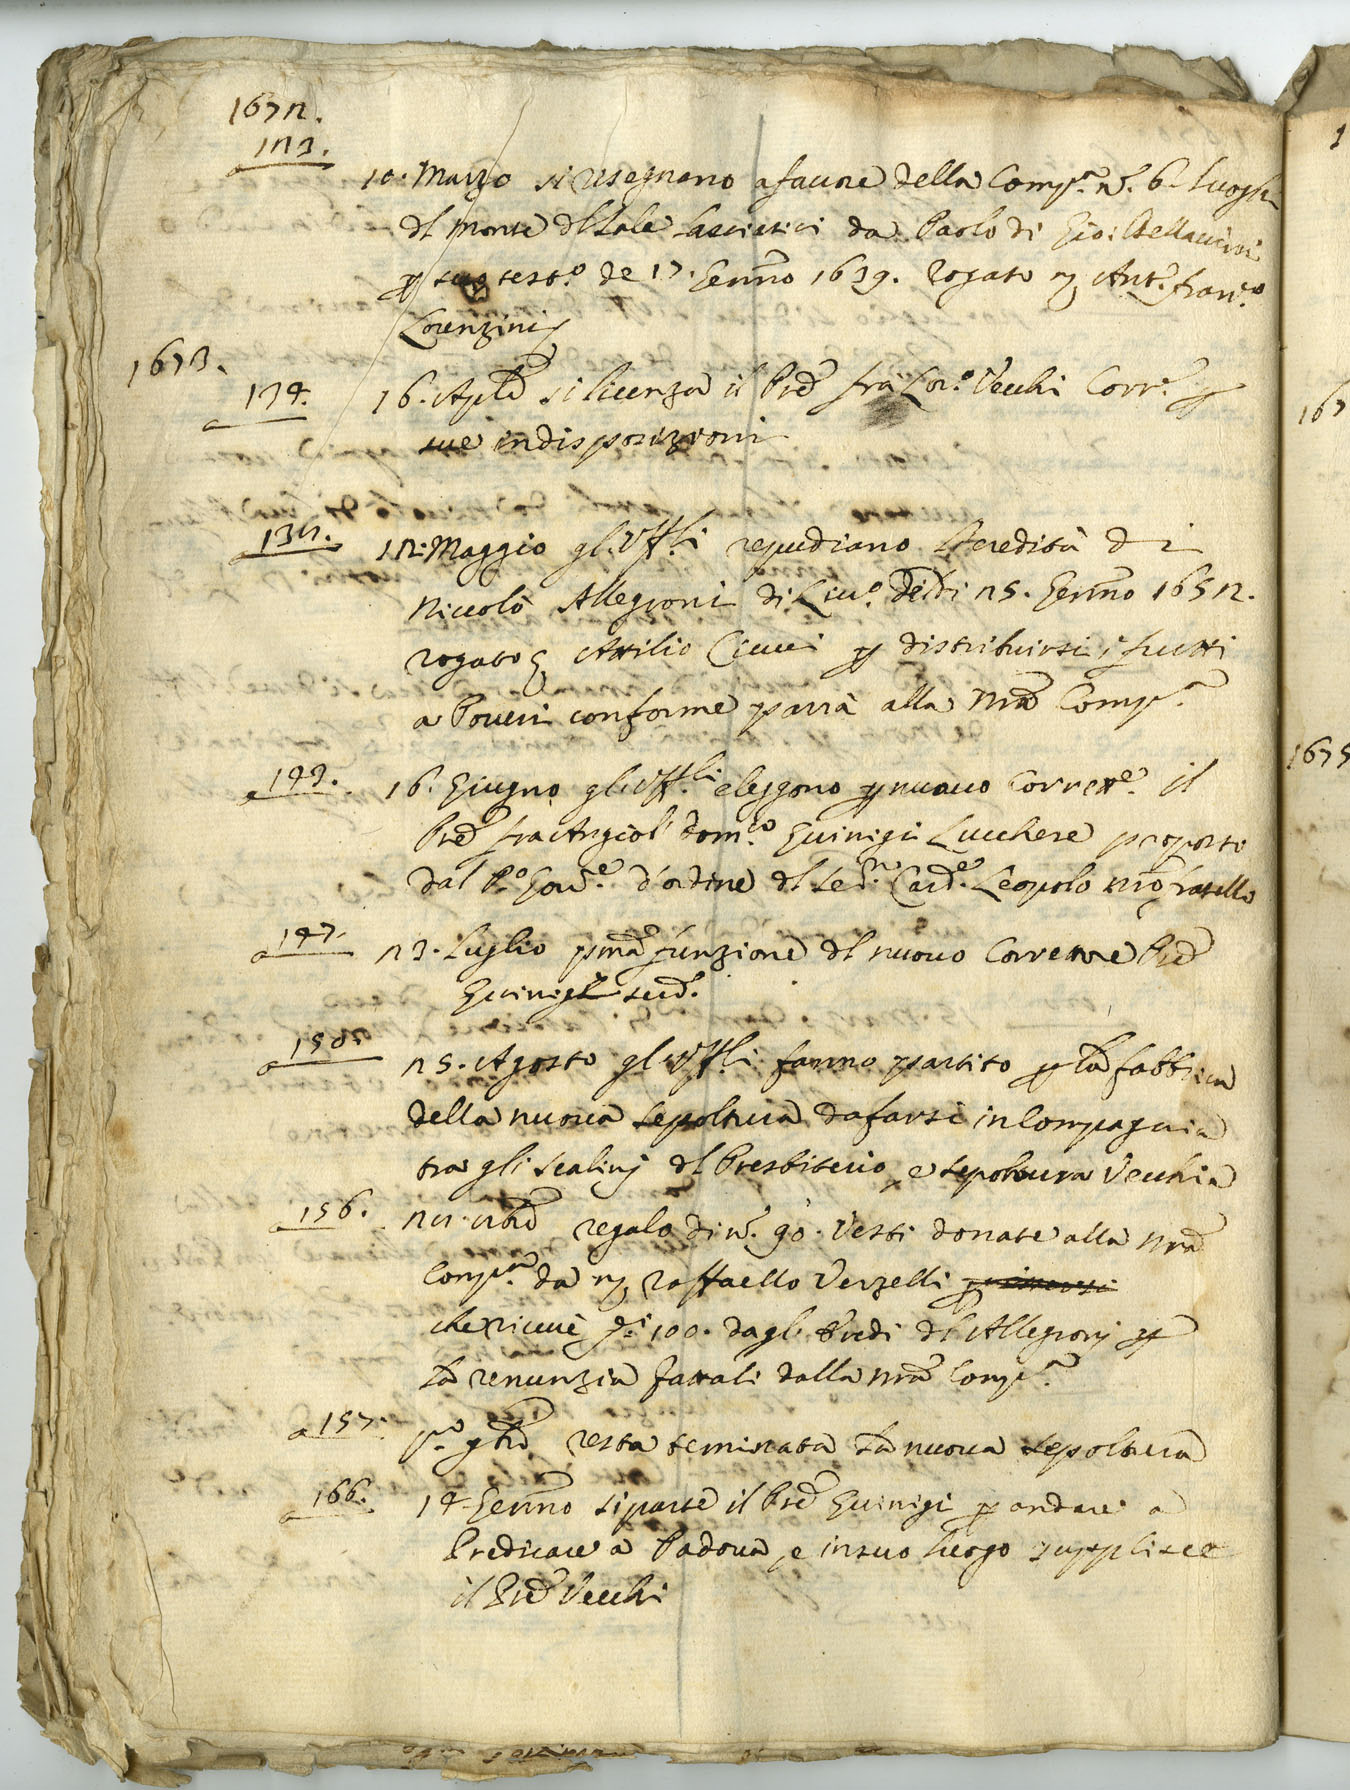 1672.
a 123.
10. Marzo si rasegnano a favore della Comp.ª n.º 6. luoghi
dl Monte dl Sale lasciatici da Paolo di Gio:
p suo testo. de 17. Genno 1639. rogato ser Ant.º Fran.co
Lorenzini
1673.
a 134.
16. Aple si licenza il Pre fra Lor.º Vecchi Corr.e p
sue indisposizioni
a 135.
12. Maggio gl'Uff.li repudiano l'eredità di
Niccolò Allegroni di Liv.º de di 25. Genno 1652.
rogato ser Attilio Ciucci p distribuirsi i frutti
a Poveri conforme parrà alla nra Comp.ª
a 143.
16. Giugno gl'Uff.li eleggono p nuovo Corrett.e il
Pre fra Angiol Dom.co Guinigi Lucchese proposto
dal P.º Gov.e d'ordine dl Ser.mo Card.e Leopolo nro fratello
a 147.
23. Luglio pma funzione dl nuovo Corretore Pre
Guinigi sud.º
a 150.
25. Agosto gl'Uff.li fanno partito p la fabbrica
della nuova sepoltura da farsi in Compagnia
tra gli scalinj dl Presbiterio, e sepoltura Vecchia
a 156.
regalo di n.º 90. Vesti donate alla nra
Comp.ª da ser Raffaello Verzelli
che riceuè p.i 100. dagl'Eredi dl Allegronj p
la renunzia fattali dalla nra Comp.ª
a 157.
p.º Xbre resta teminata la nuova sepoltura
a 166.
14. Genno si parte il Pre Guinigi p andare a
Predicare a Padova, e in suo luogo supplisce
il Pre Vecchi
1675